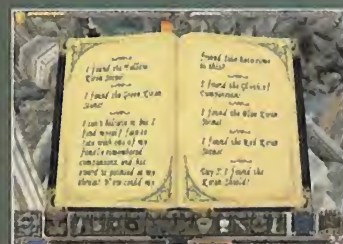 I found the Yellow
Kiran Stone!
I found the Green Kiran
Stone!
I can't believe it but I
find myself face to
face with one of my
fondly remembered
companions, and his
sword is pointed at my
throat! How could my
friend have come
to this?
I found the
Compassion!
I found the Blue Kiran
Stone!
I found the Red Kiran
Stone!
I found the
Kiran Shield!